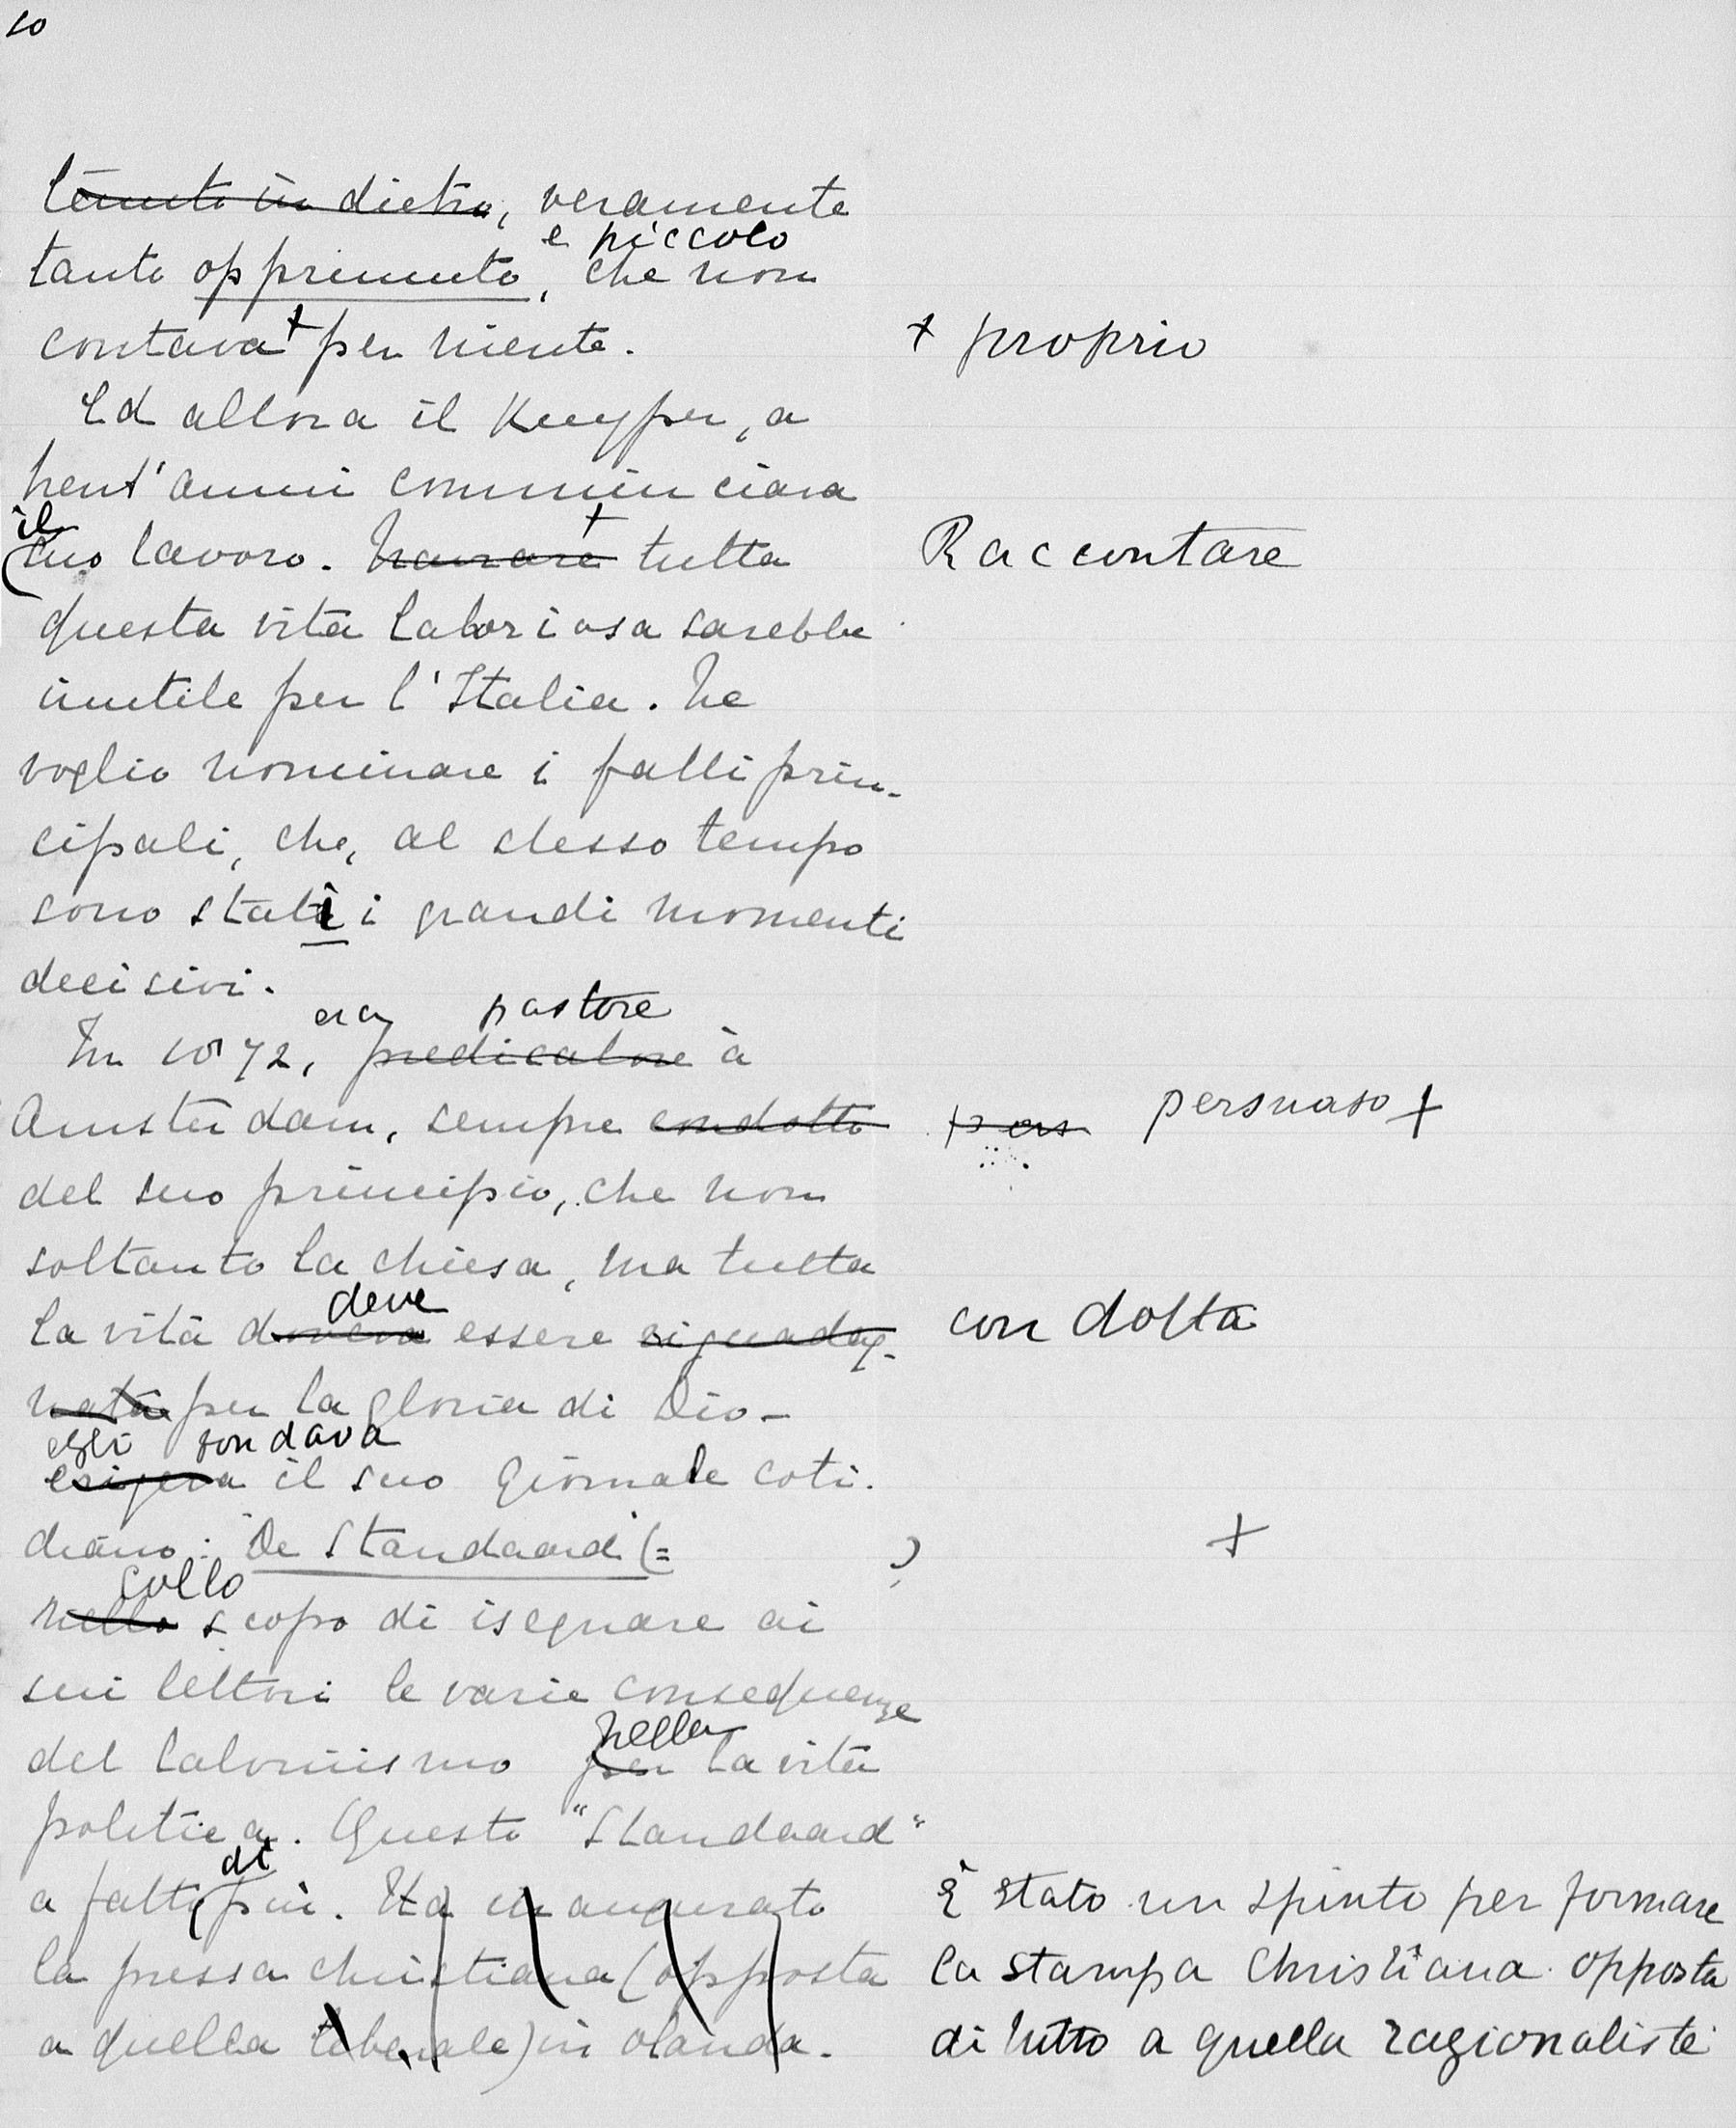 10
tenuto in dietro, veramente
e piccolo
tanto opprimuto, che non
contava + per niente.
+ proprio
Ed allora il Kuyper, a
trent'anni comminciava
il
suo lavoro. Narrare + tutta
Raccontare
questa vita laboriosa sarebbe
inutile per l'Italia. Ne
voglio nominare i fatti prin-
cipali, che, al stesso tempo
sono stati i grandi momenti
decisivi.
era pastore
In 1872, predicatore à
Amsterdam, sempre condotto
pers persuaso +
del suo principio, che non
soltanto la chiesa, ma tutta
deve
la vita doveva essere riguadag-
condotta
nata per la gloria di Dio -
egli fondava
esigeva il suo giornale coti-
diano: De Standaard (= )
+
collo
nello scopo di isegnare ai
sui lettori le varie consequenze
nella
del Calvinismo per la vita
politica. Questo "Standaard"
di
a fatto più. Ha inaugurato
la pressa christiana (opposta
a quella liberale) in Olanda.
È stato un spinto per formare
la stampa Christiana opposta
di tutto a quella razionaliste